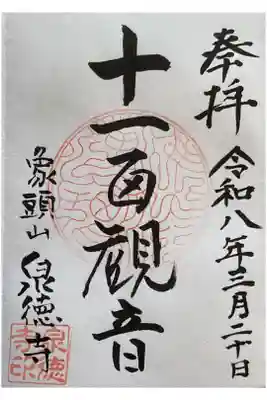 奉拝 令和八年三月二十日
十一面観音
象頭山 泉徳寺
泉徳寺印